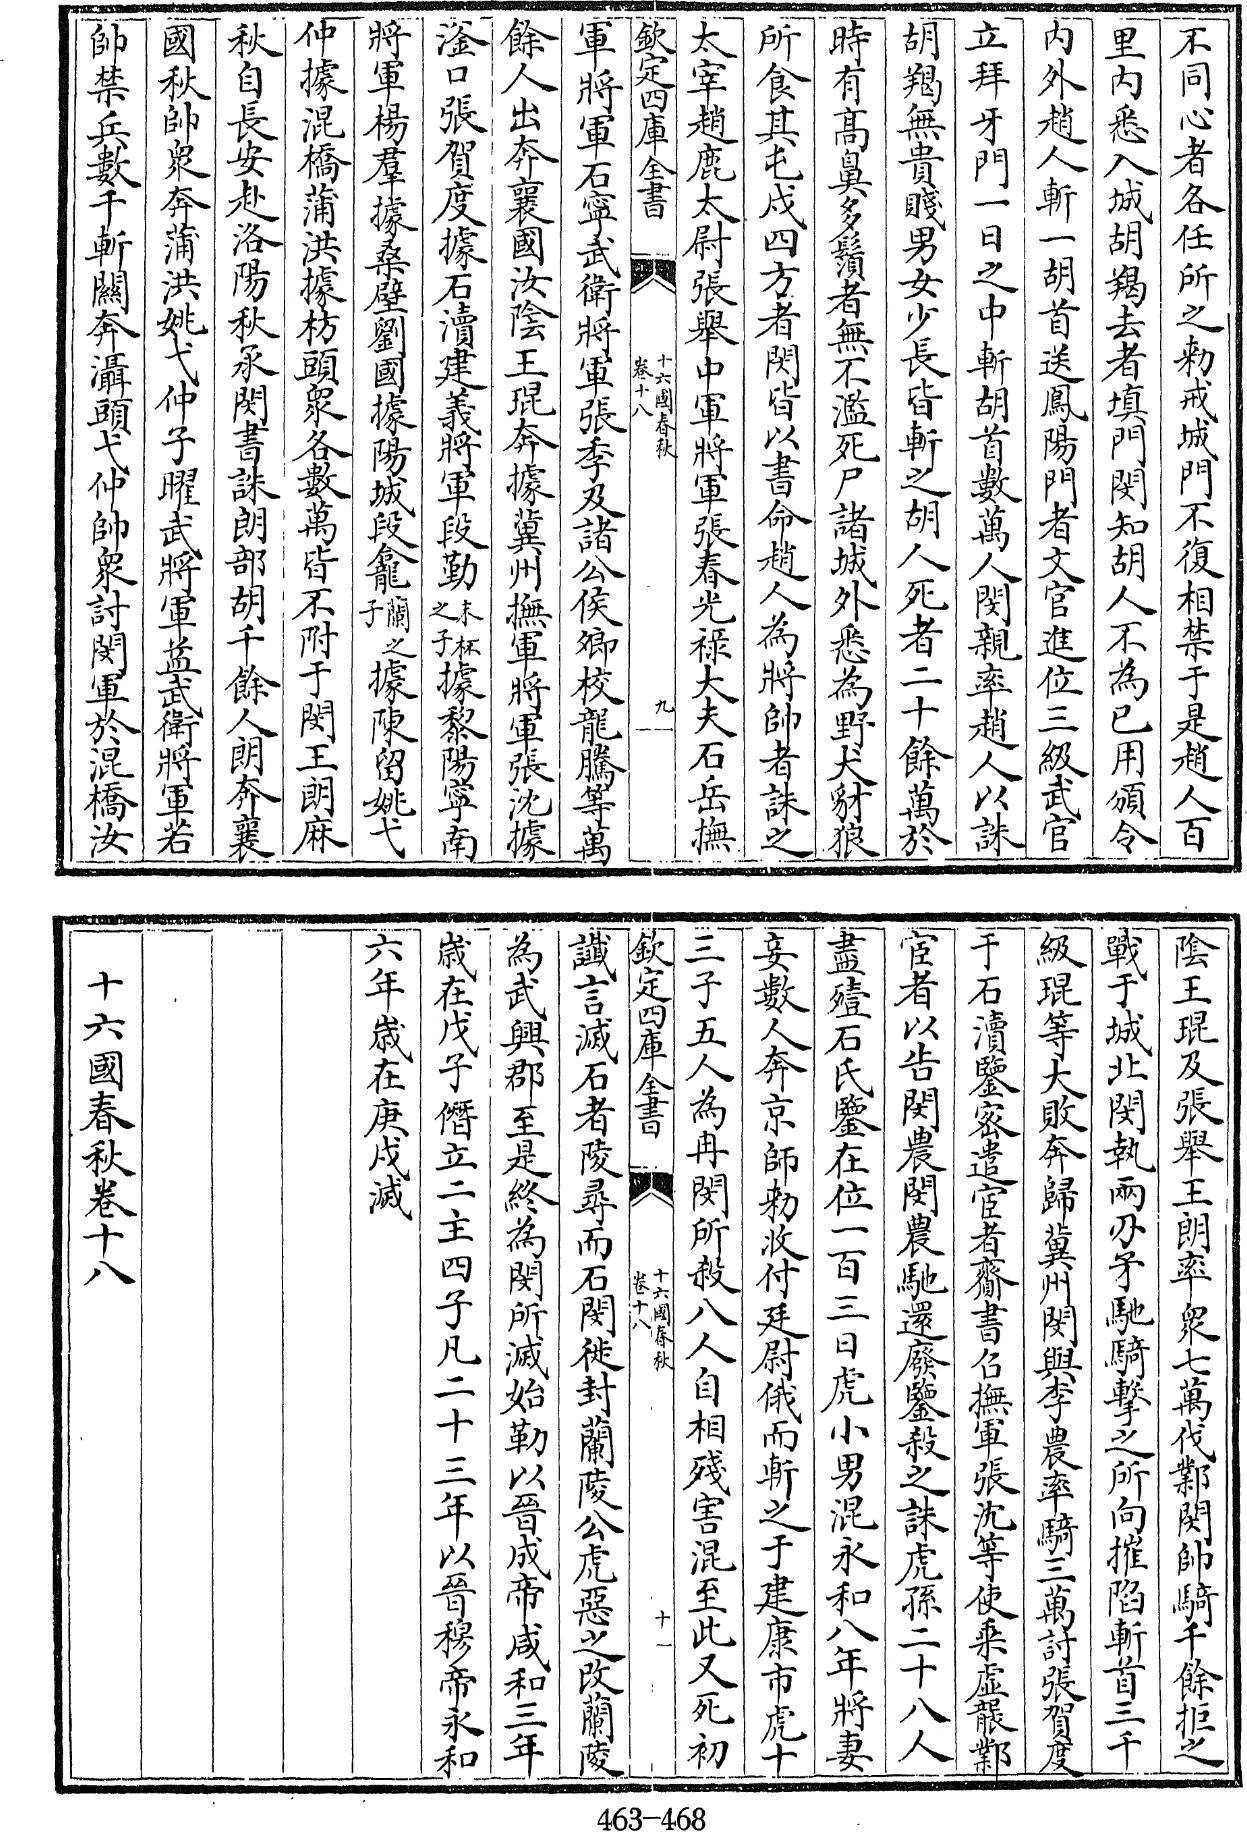 不同心者各任所之勑戒城門不復相禁于是趙人百
里内悉入城胡羯去者填門閔知胡人不為已用頒令
内外趙人斬一胡首送鳳陽門者文官進位三級武官
立拜牙門一日之中斬胡首數萬人閔親率趙人以誅
胡羯無貴賤男女少長皆斬之胡人死者二十餘萬於
時有髙鼻多鬚者無不濫死尸諸城外悉為野犬豺狼
所食其屯戍四方者閔皆以書命趙人為將帥者誅之
太宰趙鹿太尉張舉中軍將軍張春光禄大夫石岳撫
欽定四庫全書
十六國春秋
卷十八
九
軍將軍石寧武衛將軍張季及諸公侯卿校龍騰等萬
餘人出奔襄國汝陰王琨奔據冀州撫軍將軍張沈據
滏口張賀度據石瀆建義將軍段勤末柸之子據黎陽寧南
將軍楊羣據桑壁劉國據陽城段龕蘭之子據陳留姚弋
仲據混橋蒲洪據枋頭衆各數萬皆不附于閔王朗麻
秋自長安赴洛陽秋承閔書誅朗部胡千餘人朗奔襄
國秋帥衆奔蒲洪姚弋仲子曜武將軍益武衛將軍若
帥禁兵數千斬關奔灄頭弋仲帥衆討閔軍於混橋汝
陰王琨及張舉王朗率衆七萬伐鄴閔帥騎千餘拒之
戰于城北閔執兩刃矛馳騎擊之所向摧陷斬首三千
級琨等大敗奔歸冀州閔與李農率騎三萬討張賀度
于石瀆鑒密遣宦者齎書召撫軍張沈等使乘虛襲鄴
宦者以告閔農閔農馳還廢鑒殺之誅虎孫二十八人
盡殪石氏鑒在位一百三日虎小男混永和八年將妻
妾數人奔京師勑收付廷尉俄而斬之于建康市虎十
三子五人為冉閔所殺八人自相殘害混至此又死初
欽定四庫全書
十六國春秋
卷十八
十
讖言滅石者陵尋而石閔徙封蘭陵公虎惡之改蘭陵
為武興郡至是終為閔所滅始勒以晉成帝咸和三年
歳在戊子僭立二主四子凡二十三年以晉穆帝永和
六年歳在庚戌滅
十六國春秋卷十八
463-468